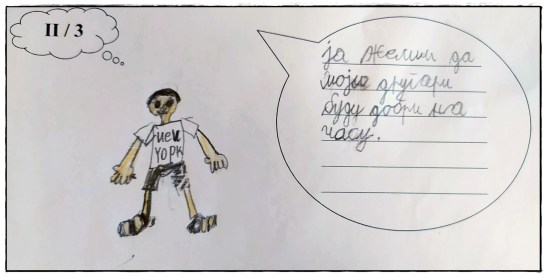 II / 3
NEW
YORK
ја желим да
моји другари
буду добри на
часу.